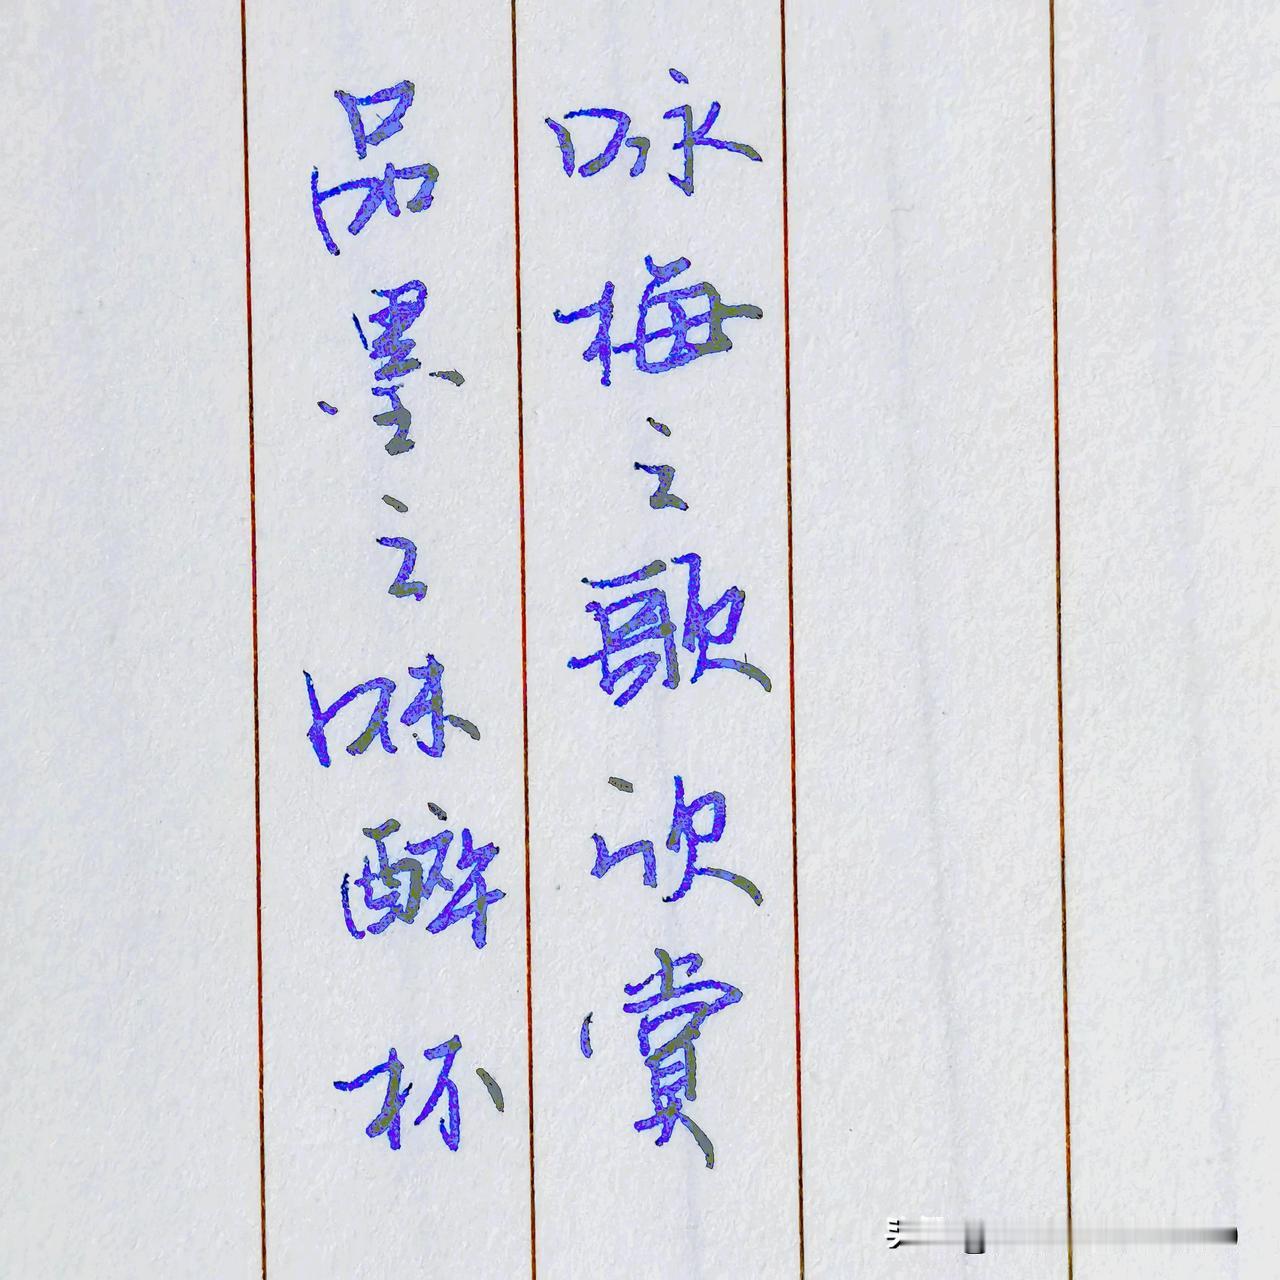 咏梅之歌欣赏
品墨之味醉杯